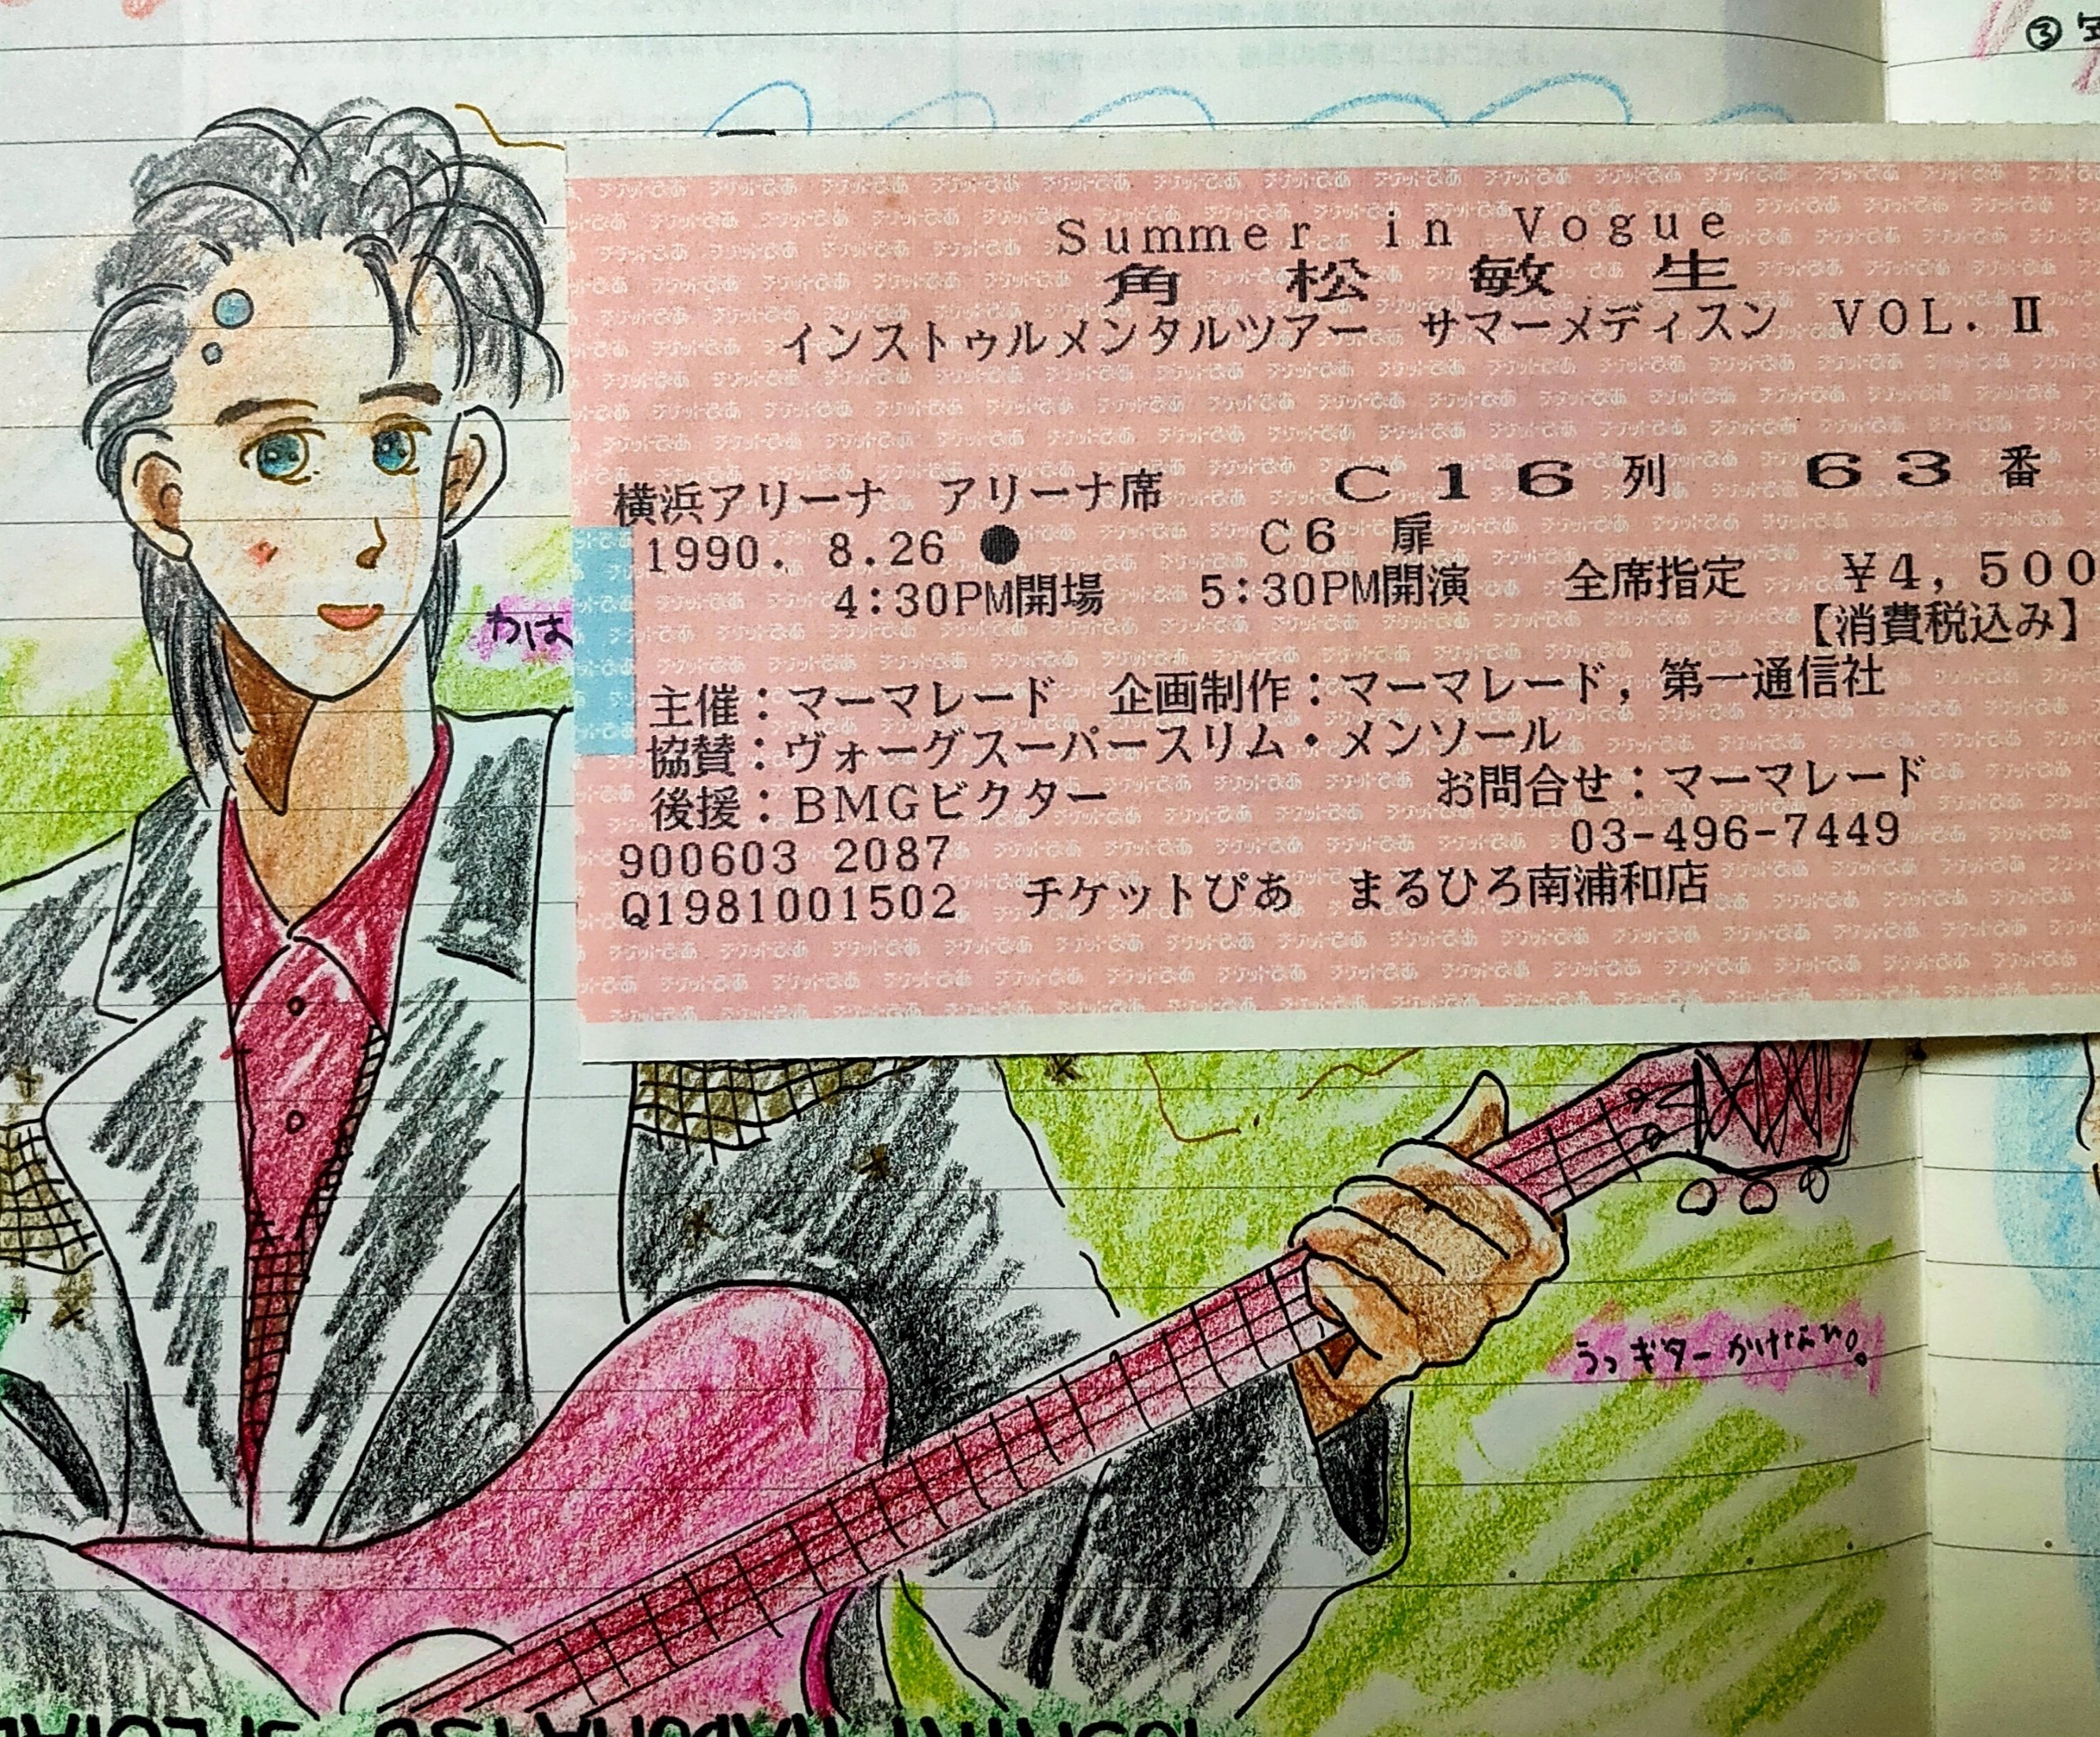 Summer in Vogue
角松敏生
インストゥルメンタルツアー サマーメディスン VOL.Ⅱ
横浜アリーナ アリーナ席 C16列 63番
1990. 8.26 ● C6 扉
4:30PM開場 5:30PM開演 全席指定 ¥4,500
【消費税込み】
主催:マーマレード 企画制作:マーマレード,第一通信社
協賛:ヴォーグスーパースリム・メンソール
後援:BMGビクター お問合せ:マーマレード
900603 2087 03-496-7449
Q1981001502 チケットぴあ まるひろ南浦和店
かは
うっギターかけない。
③